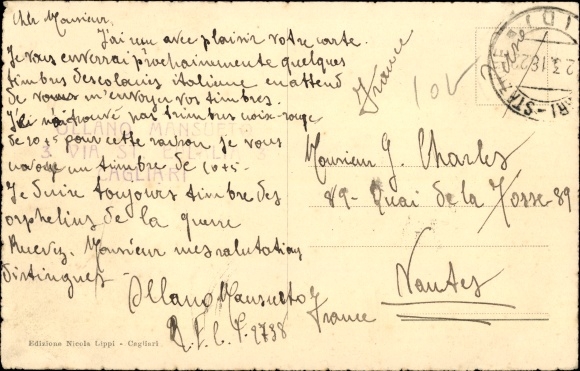 Cher Monsieur,
J'ai reçu avec plaisir votre carte.
Je vous enverrai prochainemente quelques
timbres des colonies italienne en attend
de vous m'envoyer vos timbres.
J'ai trouvé pas timbres croix-rouge
de 10+5 pour cette raison, je vous
un timbre de 10+5-
Je désire toujours timbre des
orphelins de la guerre
Recevez, Monsieur mes salutations
distingues -
Ollano Mansueto
R.F.C.F. 9738
OLLANO MANSUETO
3 VIA
CAGLIARI
Edizione Nicola Lippi - Cagliari
France
10 L
Monsieur G. Charles
89 - Quai de la Fosse 89
Nantes
France